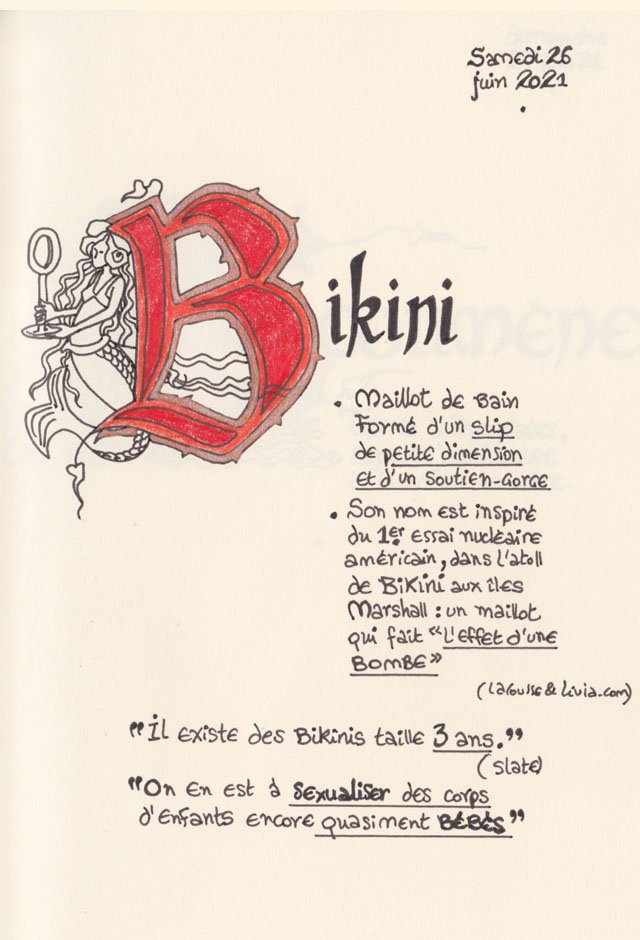 Samedi 26
juin 2021
Bikini
• Maillot de Bain
Formé d'un slip
de petite dimension
et d'un soutien-Gorge
• Son nom est inspiré
du 1er essai nucléaire
américain, dans l'atoll
de Bikini aux îles
Marshall : un maillot
qui fait "L'effet d'une
BOMBE"
(Larousse & Livia.com)
"Il existe des Bikinis taille 3 ans."
(Slate)
"On en est à sexualiser des corps
d'enfants encore quasiment BÉBÉS"